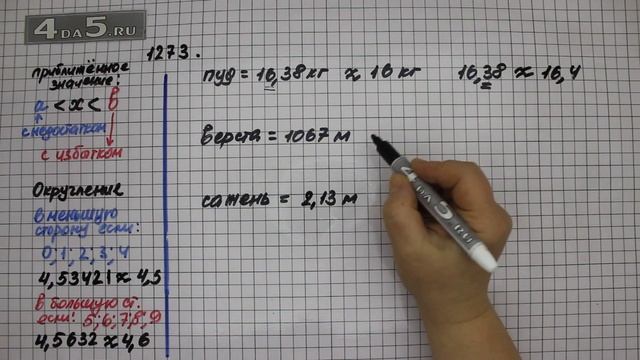 4DA5.RU
1273.
приближённое
значение:
a < x < b
с недостатком
с избытком
Округление
в меньшую
сторону если:
0; 1; 2; 3; 4
4,53421 ≈ 4,5
в большую ст.
если: 5; 6; 7; 8; 9
4,5632 ≈ 4,6
пуд = 16,38 кг ≈ 16 кг 16,38 ≈ 16,4
верста = 1067 м
сажень = 2,13 м
4DA5.RU